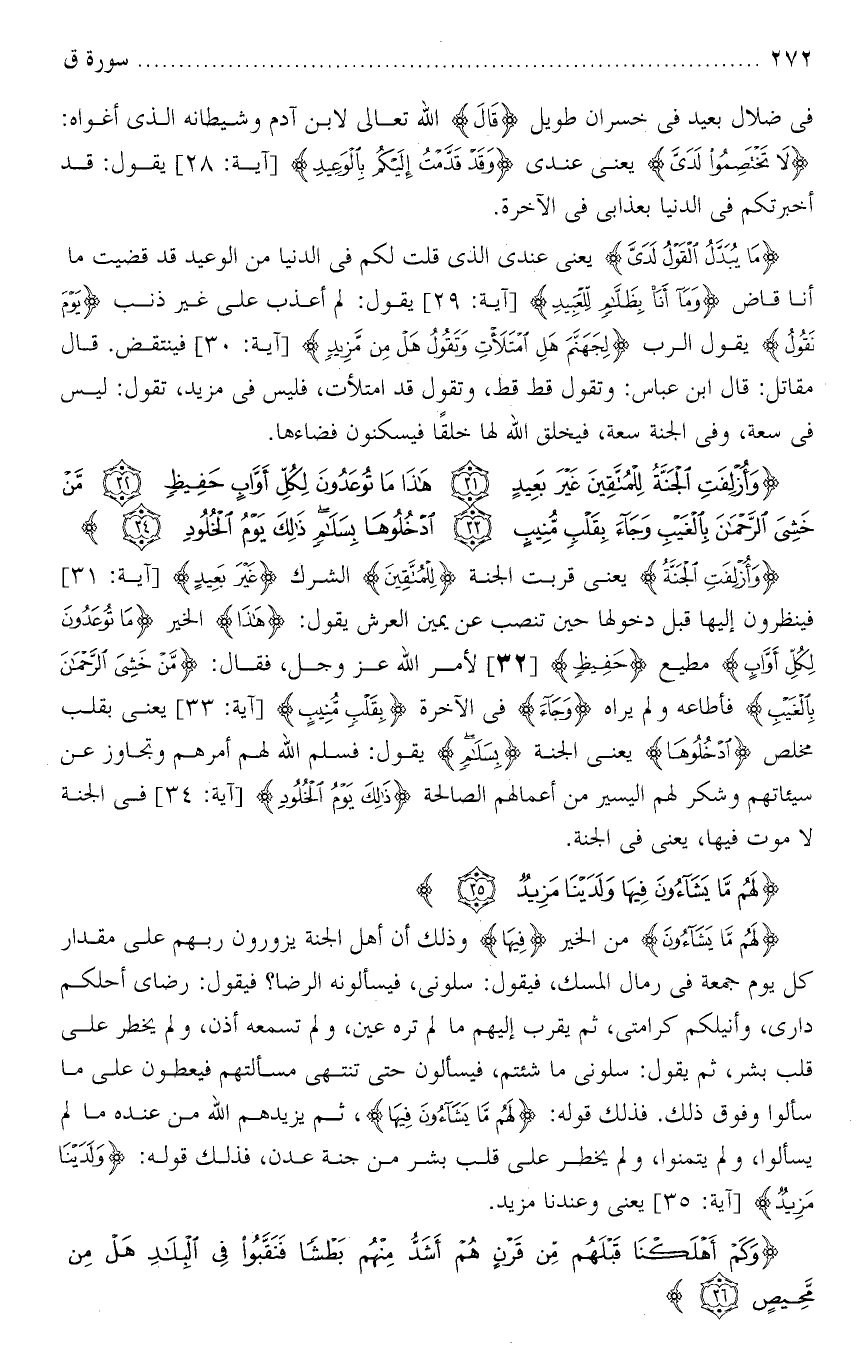 ٢٧٢ ........................................................................... سورة ق
فى ضلال بعيد فى خسران طويل ﴿قَالَ﴾ الله تعالى لابن آدم وشيطانه الذى أغواه:
﴿لَا تَخْتَصِمُوا۟ لَدَىَّ﴾ يعنى عندى ﴿وَقَدْ قَدَّمْتُ إِلَيْكُم بِٱلْوَعِيدِ﴾ [آية: ٢٨] يقول: قد
أخبرتكم فى الدنيا بعذابى فى الآخرة.
﴿مَا يُبَدَّلُ ٱلْقَوْلُ لَدَىَّ﴾ يعنى عندى الذى قلت لكم فى الدنيا من الوعيد قد قضيت ما
أنا قاض ﴿وَمَآ أَنَا۠ بِظَلَّٰمٍ لِّلْعَبِيدِ﴾ [آية: ٢٩] يقول: لم أعذب على غير ذنب ﴿يَوْمَ
نَقُولُ﴾ يقول الرب ﴿لِجَهَنَّمَ هَلِ ٱمْتَلَأْتِ وَتَقُولُ هَلْ مِن مَّزِيدٍ﴾ [آية: ٣٠] فينتقض. قال
مقاتل: قال ابن عباس: وتقول قط قط، وتقول قد امتلأت، فليس فى مزيد، تقول: ليس
فى سعة، وفى الجنة سعة، فيخلق الله لها خلقًا فيسكنون فضاءها.
﴿وَأُزْلِفَتِ ٱلْجَنَّةُ لِلْمُتَّقِينَ غَيْرَ بَعِيدٍ ٣١ هَٰذَا مَا تُوعَدُونَ لِكُلِّ أَوَّابٍ حَفِيظٍ ٣٢ مَّنْ
خَشِىَ ٱلرَّحْمَٰنَ بِٱلْغَيْبِ وَجَآءَ بِقَلْبٍ مُّنِيبٍ ٣٣ ٱدْخُلُوهَا بِسَلَٰمٍ ۖ ذَٰلِكَ يَوْمُ ٱلْخُلُودِ ٣٤ ﴾
﴿وَأُزْلِفَتِ ٱلْجَنَّةُ﴾ يعنى قربت الجنة ﴿لِلْمُتَّقِينَ﴾ الشرك ﴿غَيْرَ بَعِيدٍ﴾ [آية: ٣١]
فينظرون إليها قبل دخولها حين تنصب عن يمين العرش يقول: ﴿هَٰذَا﴾ الخير ﴿مَا تُوعَدُونَ
لِكُلِّ أَوَّابٍ﴾ مطيع ﴿حَفِيظٍ﴾ [٣٢] لأمر الله عز وجل، فقال: ﴿مَّنْ خَشِىَ ٱلرَّحْمَٰنَ
بِٱلْغَيْبِ﴾ فأطاعه ولم يراه ﴿وَجَآءَ﴾ فى الآخرة ﴿بِقَلْبٍ مُّنِيبٍ﴾ [آية: ٣٣] يعنى بقلب
مخلص ﴿ٱدْخُلُوهَا﴾ يعنى الجنة ﴿بِسَلَٰمٍ ۖ﴾ يقول: فسلم الله لهم أمرهم وتجاوز عن
سيئاتهم وشكر لهم اليسير من أعمالهم الصالحة ﴿ذَٰلِكَ يَوْمُ ٱلْخُلُودِ﴾ [آية: ٣٤] فى الجنة
لا موت فيها، يعنى فى الجنة.
﴿لَهُم مَّا يَشَآءُونَ فِيهَا وَلَدَيْنَا مَزِيدٌ ٣٥ ﴾
﴿لَهُم مَّا يَشَآءُونَ﴾ من الخير ﴿فِيهَا﴾ وذلك أن أهل الجنة يزورون ربهم على مقدار
كل يوم جمعة فى رمال المسك، فيقول: سلونى، فيسألونه الرضا؟ فيقول: رضاى أحلكم
دارى، وأنيلكم كرامتى، ثم يقرب إليهم ما لم تره عين، ولم تسمعه أذن، ولم يخطر على
قلب بشر، ثم يقول: سلونى ما شئتم، فيسألون حتى تنتهى مسألتهم فيعطون على ما
سألوا وفوق ذلك. فذلك قوله: ﴿لَهُم مَّا يَشَآءُونَ فِيهَا﴾، ثم يزيدهم الله من عنده ما لم
يسألوا، ولم يتمنوا، ولم يخطر على قلب بشر من جنة عدن، فذلك قوله: ﴿وَلَدَيْنَا
مَزِيدٌ﴾ [آية: ٣٥] يعنى وعندنا مزيد.
﴿وَكَمْ أَهْلَكْنَا قَبْلَهُم مِّن قَرْنٍ هُمْ أَشَدُّ مِنْهُم بَطْشًا فَنَقَّبُوا۟ فِى ٱلْبِلَٰدِ هَلْ مِن
مَّحِيصٍ ٣٦ ﴾